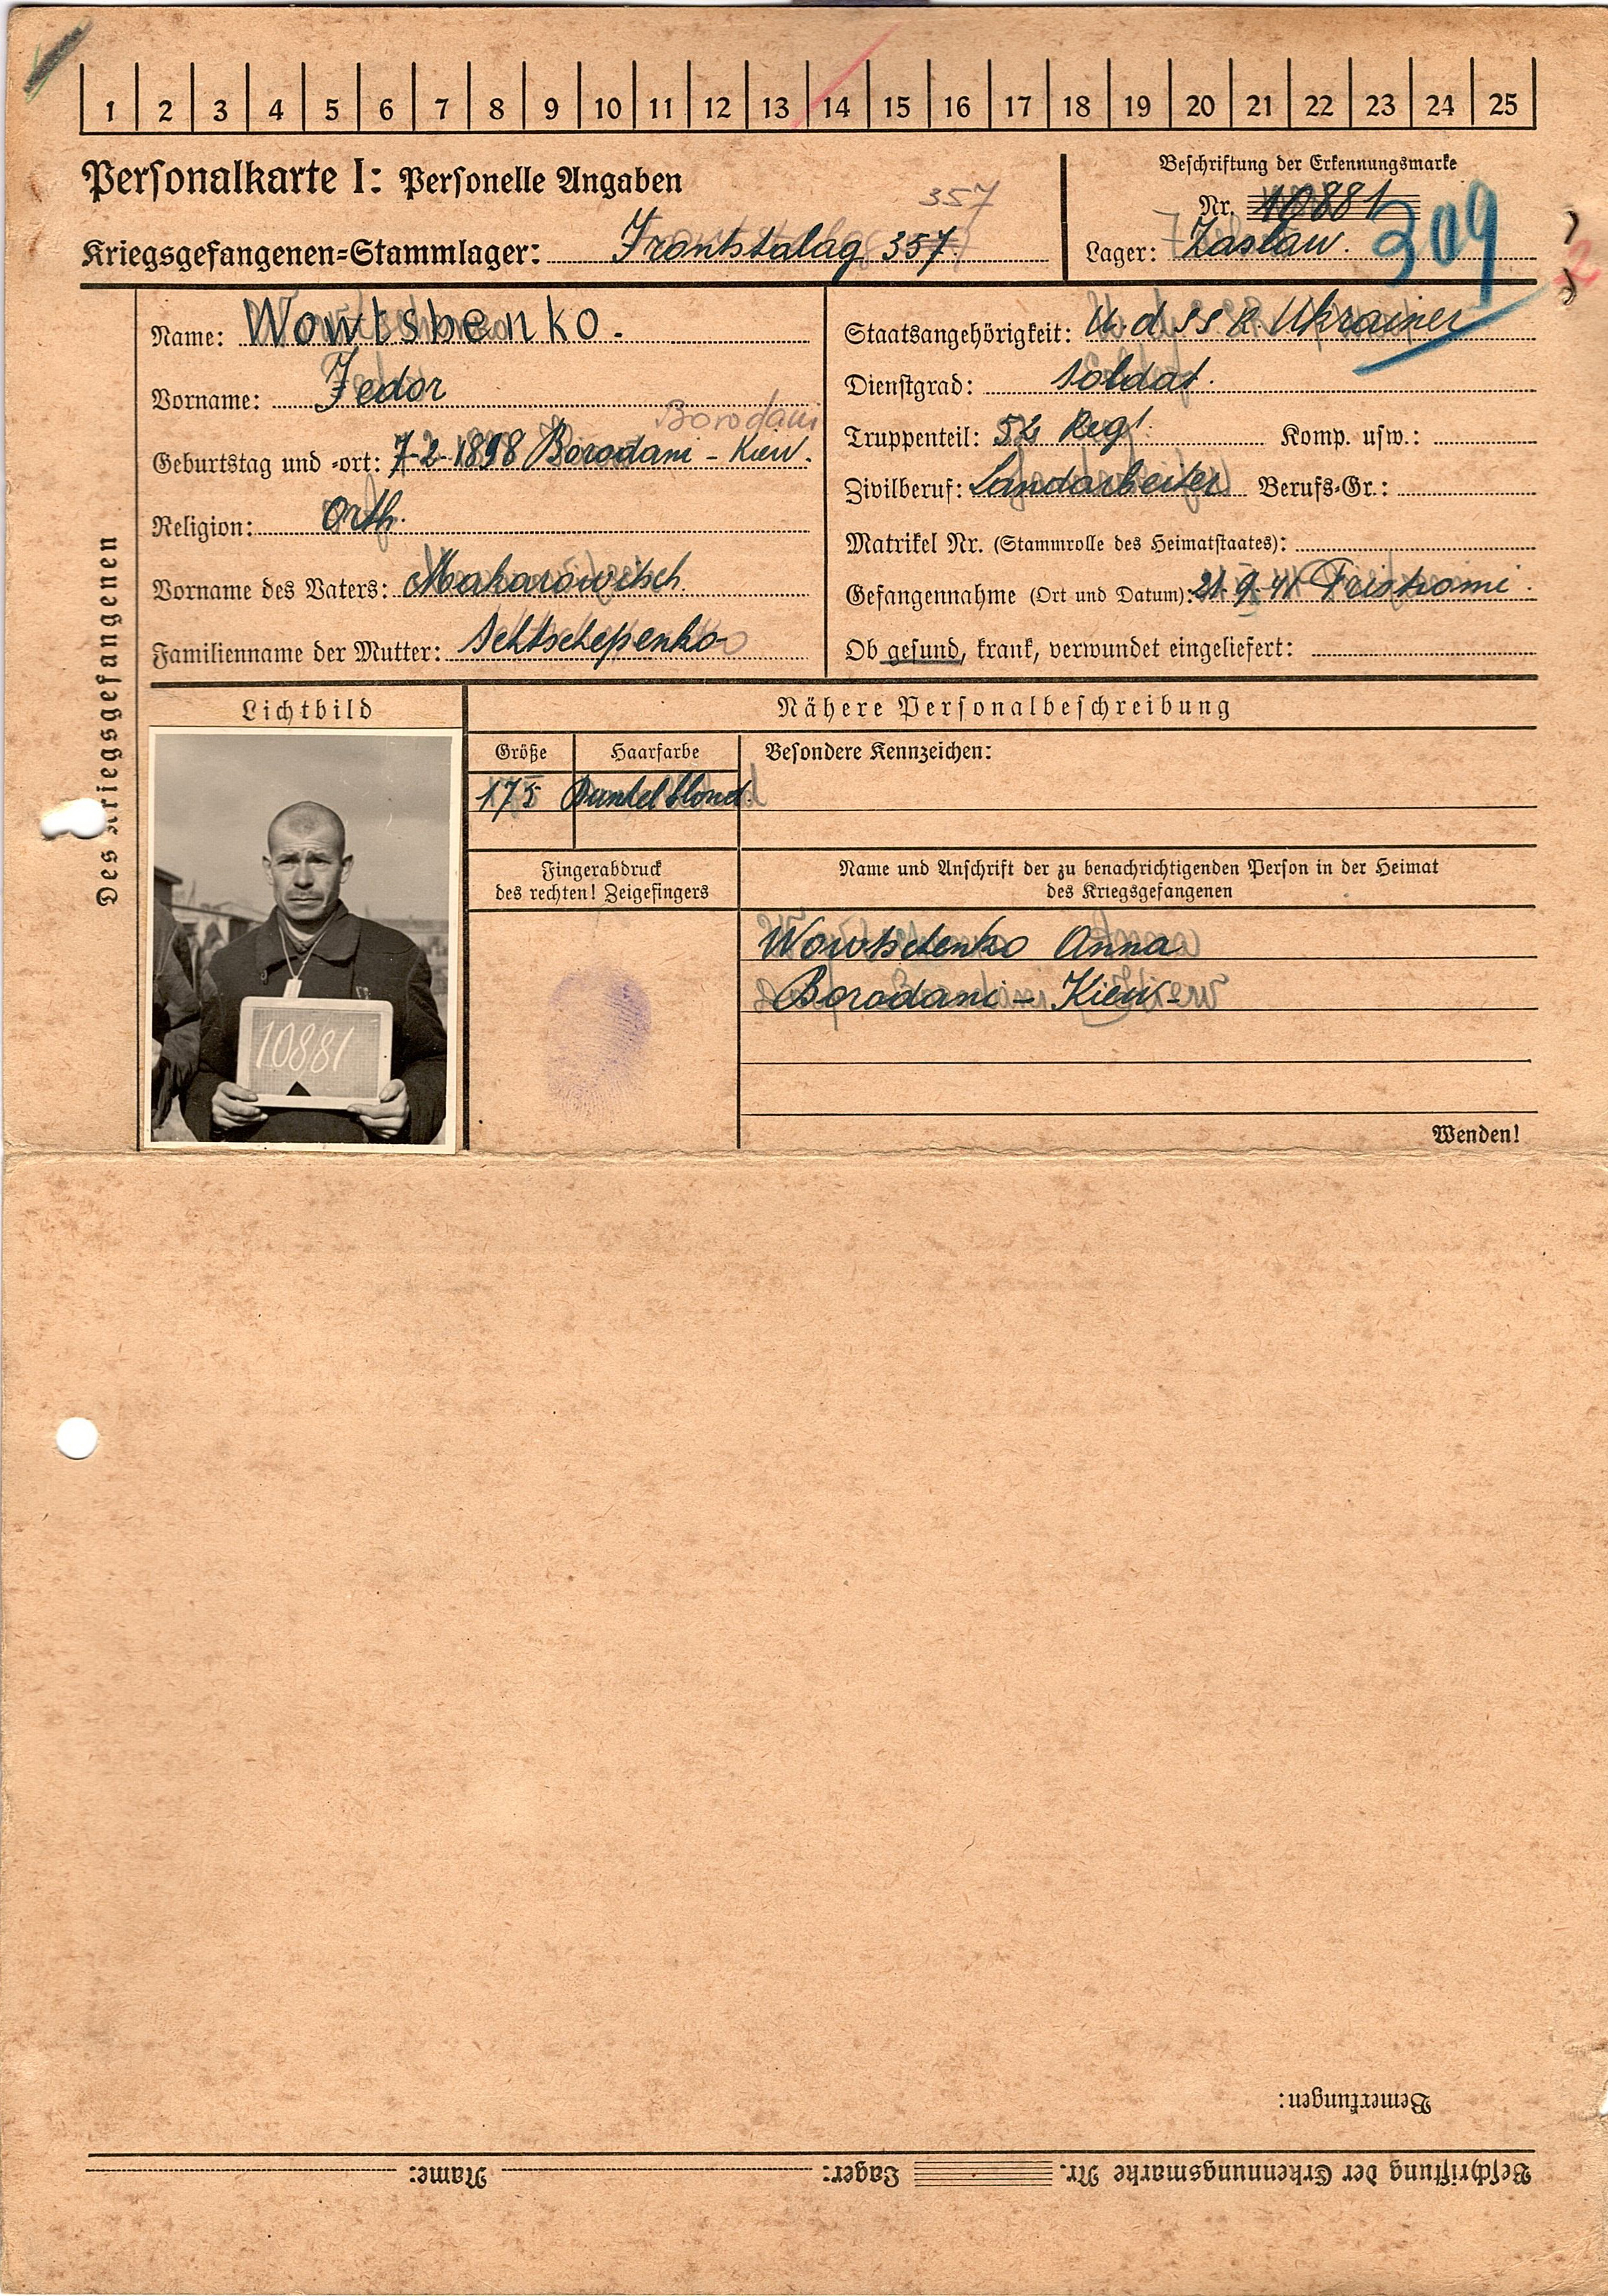 1 2 3 4 5 6 7 8 9 10 11 12 13 14 15 16 17 18 19 20 21 22 23 24 25
Personalkarte I: Personelle Angaben
357
Kriegsgefangenen=Stammlager: Frontstalag 357
Beschriftung der Erkennungsmarke
Nr. 10881
Lager: Zaslaw.
309
2
Des Kriegsgefangenen
Name: Wowtshenko.
Vorname: Fedor
Borodani
Geburtstag und =ort: 7-2-1898 Borodani - Kiew.
Religion: Orth.
Vorname des Vaters: Makarowitsch.
Familienname der Mutter: Schtschepenko
Staatsangehörigkeit: U.d.SSR. Ukrainer
Dienstgrad: Soldat.
Truppenteil: 52 Reg. Komp. usw.:
Zivilberuf: Landarbeiter Berufs=Gr.:
Matrikel Nr. (Stammrolle des Heimatstaates):
Gefangennahme (Ort und Datum): 21.9.41
Ob gesund, krank, verwundet eingeliefert:
Lichtbild
10881
Nähere Personalbeschreibung
Größe Haarfarbe Besondere Kennzeichen:
175 Dunkelblond.
Fingerabdruck
des rechten! Zeigefingers
Name und Anschrift der zu benachrichtigenden Person in der Heimat
des Kriegsgefangenen
Wowtschenko Anna
Borodani - Kiew-
Wenden!
Bemerkungen:
Beschriftung der Erkennungsmarke Nr. Lager: Name: